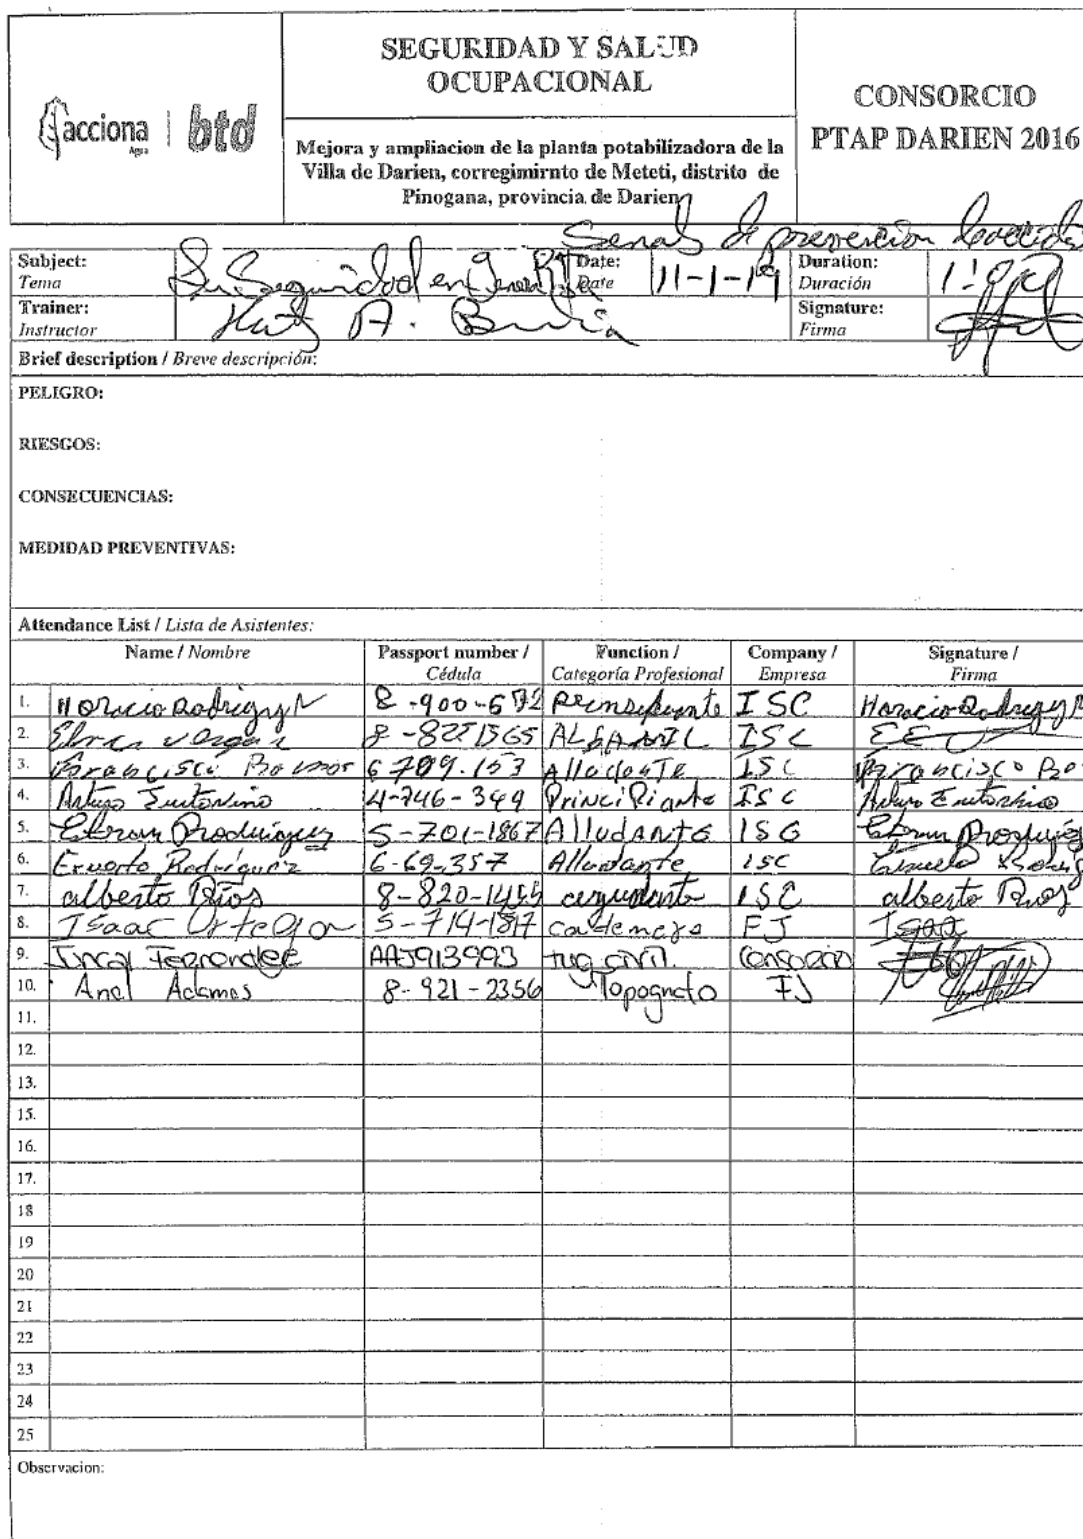 acciona
Agua
btd
SEGURIDAD Y SALUD
OCUPACIONAL
Mejora y ampliacion de la planta potabilizadora de la
Villa de Darien, corregimirnto de Meteti, distrito de
Pinogana, provincia de Darien
CONSORCIO
PTAP DARIEN 2016
Senal de prevencion
Subject:
Tema
Seguridad en
Date:
Date
11-1-19
Duration:
Duración
Trainer:
Instructor
A.
Signature:
Firma
Brief description / Breve descripción:
PELIGRO:
RIESGOS:
CONSECUENCIAS:
MEDIDAD PREVENTIVAS:
Attendance List / Lista de Asistentes:
Name / Nombre Passport number / Cédula Function / Categoría Profesional Company / Empresa Signature / Firma
1. Horacio Rodriguez 8-900-672 ISC Horacio Rodriguez
2. vergar ALBANIL ISC
3. 6 709.153 AlludanTe ISC
4. Arturo 4-746-349 PrinciPiante ISC Arturo
5. 5-701-1867 AlludAnte ISG
6. Rodriguez 6-69-357 Alludante ISC
7. alberto Rios 8-820-1455 ayudante ISC alberto Rios
8. Isaac Ortega 5-714-1817 cadenero FJ Isaac
9. AAJ913993 civil. Consorcio
10. Anel Adames 8-921-2356 Topografo FJ
11.
12.
13.
15.
16.
17.
18
19
20
21
22
23
24
25
Observacion: